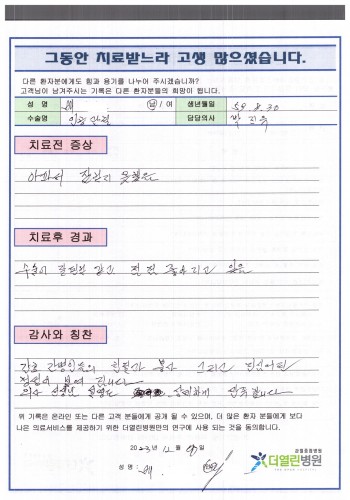 그동안 치료받느라 고생 많으셨습니다.
다른 환자분에게도 힘과 용기를 나누어 주시겠습니까?
고객님이 남겨주시는 기록은 다른 환자분들의 희망이 됩니다.
성 명 남 / 여 생년월일 59. 8. 30
수술명 인공관절 담당의사 박진욱
치료전 증상
아파서 잘걷지 못했음
치료후 경과
수술이 잘된것 같고 점점 좋아지고 있음
감사와 칭찬
간호 간병인들의 친절과 봉사 그리고
만족합니다
위 기록은 온라인 또는 다른 고객 분들에게 공개 될 수 있으며, 더 많은 환자 분들에게 보다
나은 의료서비스를 제공하기 위한 더열린병원만의 연구에 사용 되는 것을 동의합니다.
2023년 12월 일
성 명 :
더열린병원